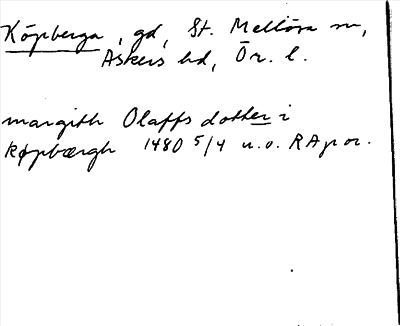 Köpberga, gd, St. Mellösa sn,
Askers hd, Ör. l.
margith Olaffs dotther i
køpbærgh 1480 5/4 u.o. RAp or.